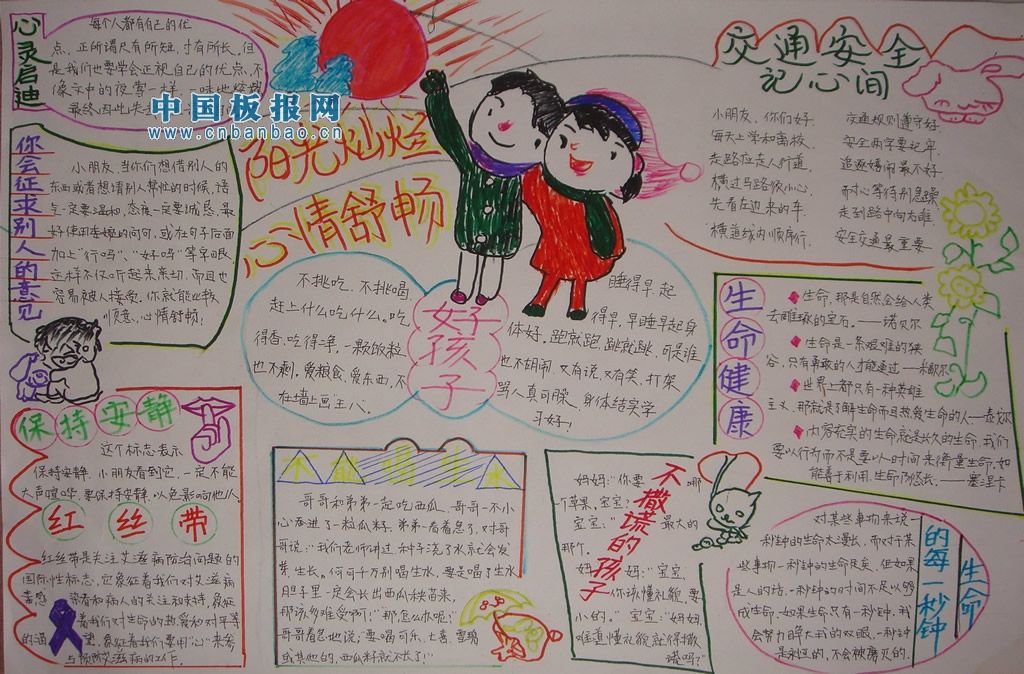 心灵启迪
每个人都有自己的优
点,正所谓尺有所短,寸有所长,但
是我们也要学会正视自己的优点,不
像
中国板报网
www.cnbanbao.cn
阳光灿烂
心情舒畅
交通安全
记心间
小朋友、你们好.
每天上学和离校.
走路应走人行道.
横过马路依小心.
先看左边来的车.
横道线内顺序行.
交通规则遵守好.
安全两字要记牢.
追逐嬉闹最不好.
耐心等待别急躁
走到路中向右瞧.
安全交通最重要.
你会征求别人的意见
小朋友,当你们想借别人的
东西或者想请别人帮忙的时候,语
气一定要温和,态度一定要诚恳.最
好使用委婉的问句,或在句子后面
加上“行吗”、“好吗”等字眼,
这样不仅听起来亲切,而且也
容易被人接受,你就能也找
顺意、心情舒畅!
好孩子
不挑吃,不挑喝,
赶上什么吃什么.吃
得香,吃得净,一颗饭粒
也不剩.爱粮食、爱东西,不
在墙上画王八.
睡得早,起
得早,早睡早起身
体好.跑就跑,跳就跳,可是谁
也不胡闹.又有说,又有笑,打架
骂人真可臊,身体结实学
习好!
生命健康
生命,那是自然会给人类
去雕琢的宝石.——诺贝尔
生命是一条艰难的狭
谷,只有勇敢的人才能通过.——米歇尔
世界上都只有一种英雄
主义,那就是了解生命而且热爱生命的人——泰戈尔
内容充实的生命就是长久的生命.我们
要以行为而不是要以时间来衡量生命.如
能善于利用,生命乃悠长.——塞涅卡
保持安静
这个标志表示
保持安静,小朋友看到它,一定不能
大声喧哗,要保持安静,以免影响他人.
红丝带
红丝带是关注艾滋病防治问题的
国际性标志,它象征着我们对艾滋病
毒感染者和病人的关注和支持,象征
着我们对生命的热爱和对平等
的渴望,象征着我们要用“心”来参
与预防艾滋病的工作.
不能喝生水
哥哥和弟弟一定吃西瓜,哥哥一不小
心吞进了一粒瓜籽.弟弟一看着急了,对哥
哥说:“我们老师讲过,种子浇了水就会发
芽,生长。你可千万别喝生水,要是喝了生水
肚子里一定会长出西瓜秧苗来,
那该多难受啊!”“那怎么办呢?”
哥哥着急地说:“要喝可乐、七喜、雪碧
或其他的,西瓜籽就不长了!”
不撒谎的孩子
妈妈:“你要哪
个苹果,宝宝?”
宝宝:“最大的
那个.”
妈妈:“宝宝,
你该懂礼貌,要
小的.”宝宝:“妈妈,
难道懂礼貌就得撒
谎吗?”
生命的每一秒钟
对某些事物来说一
秒钟的生命太漫长,而对于某
些事物一秒钟的生命很美,但如果
是人的话,一秒钟的时间不足以够
成生命.如果生命只有一秒钟,我
会努力睁大我的双眼,一秒钟
是永恒的,不会被磨灭的.